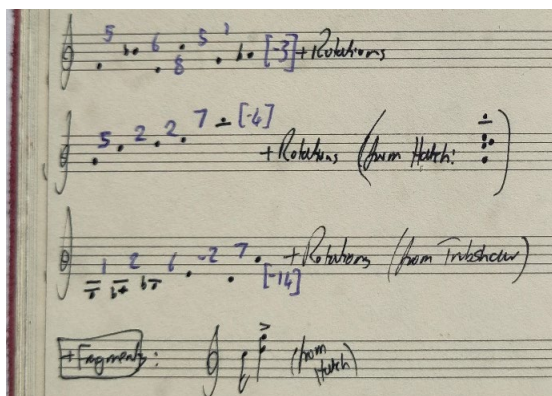 5 6 8 5 1 [-3] + Rotations
5 2 2 7 [-4]
+ Rotations (from Hatch: )
1 2 6 -2 7 + Rotations (from Trubshaw)
[-14]
+ Fragments: (from Hatch)